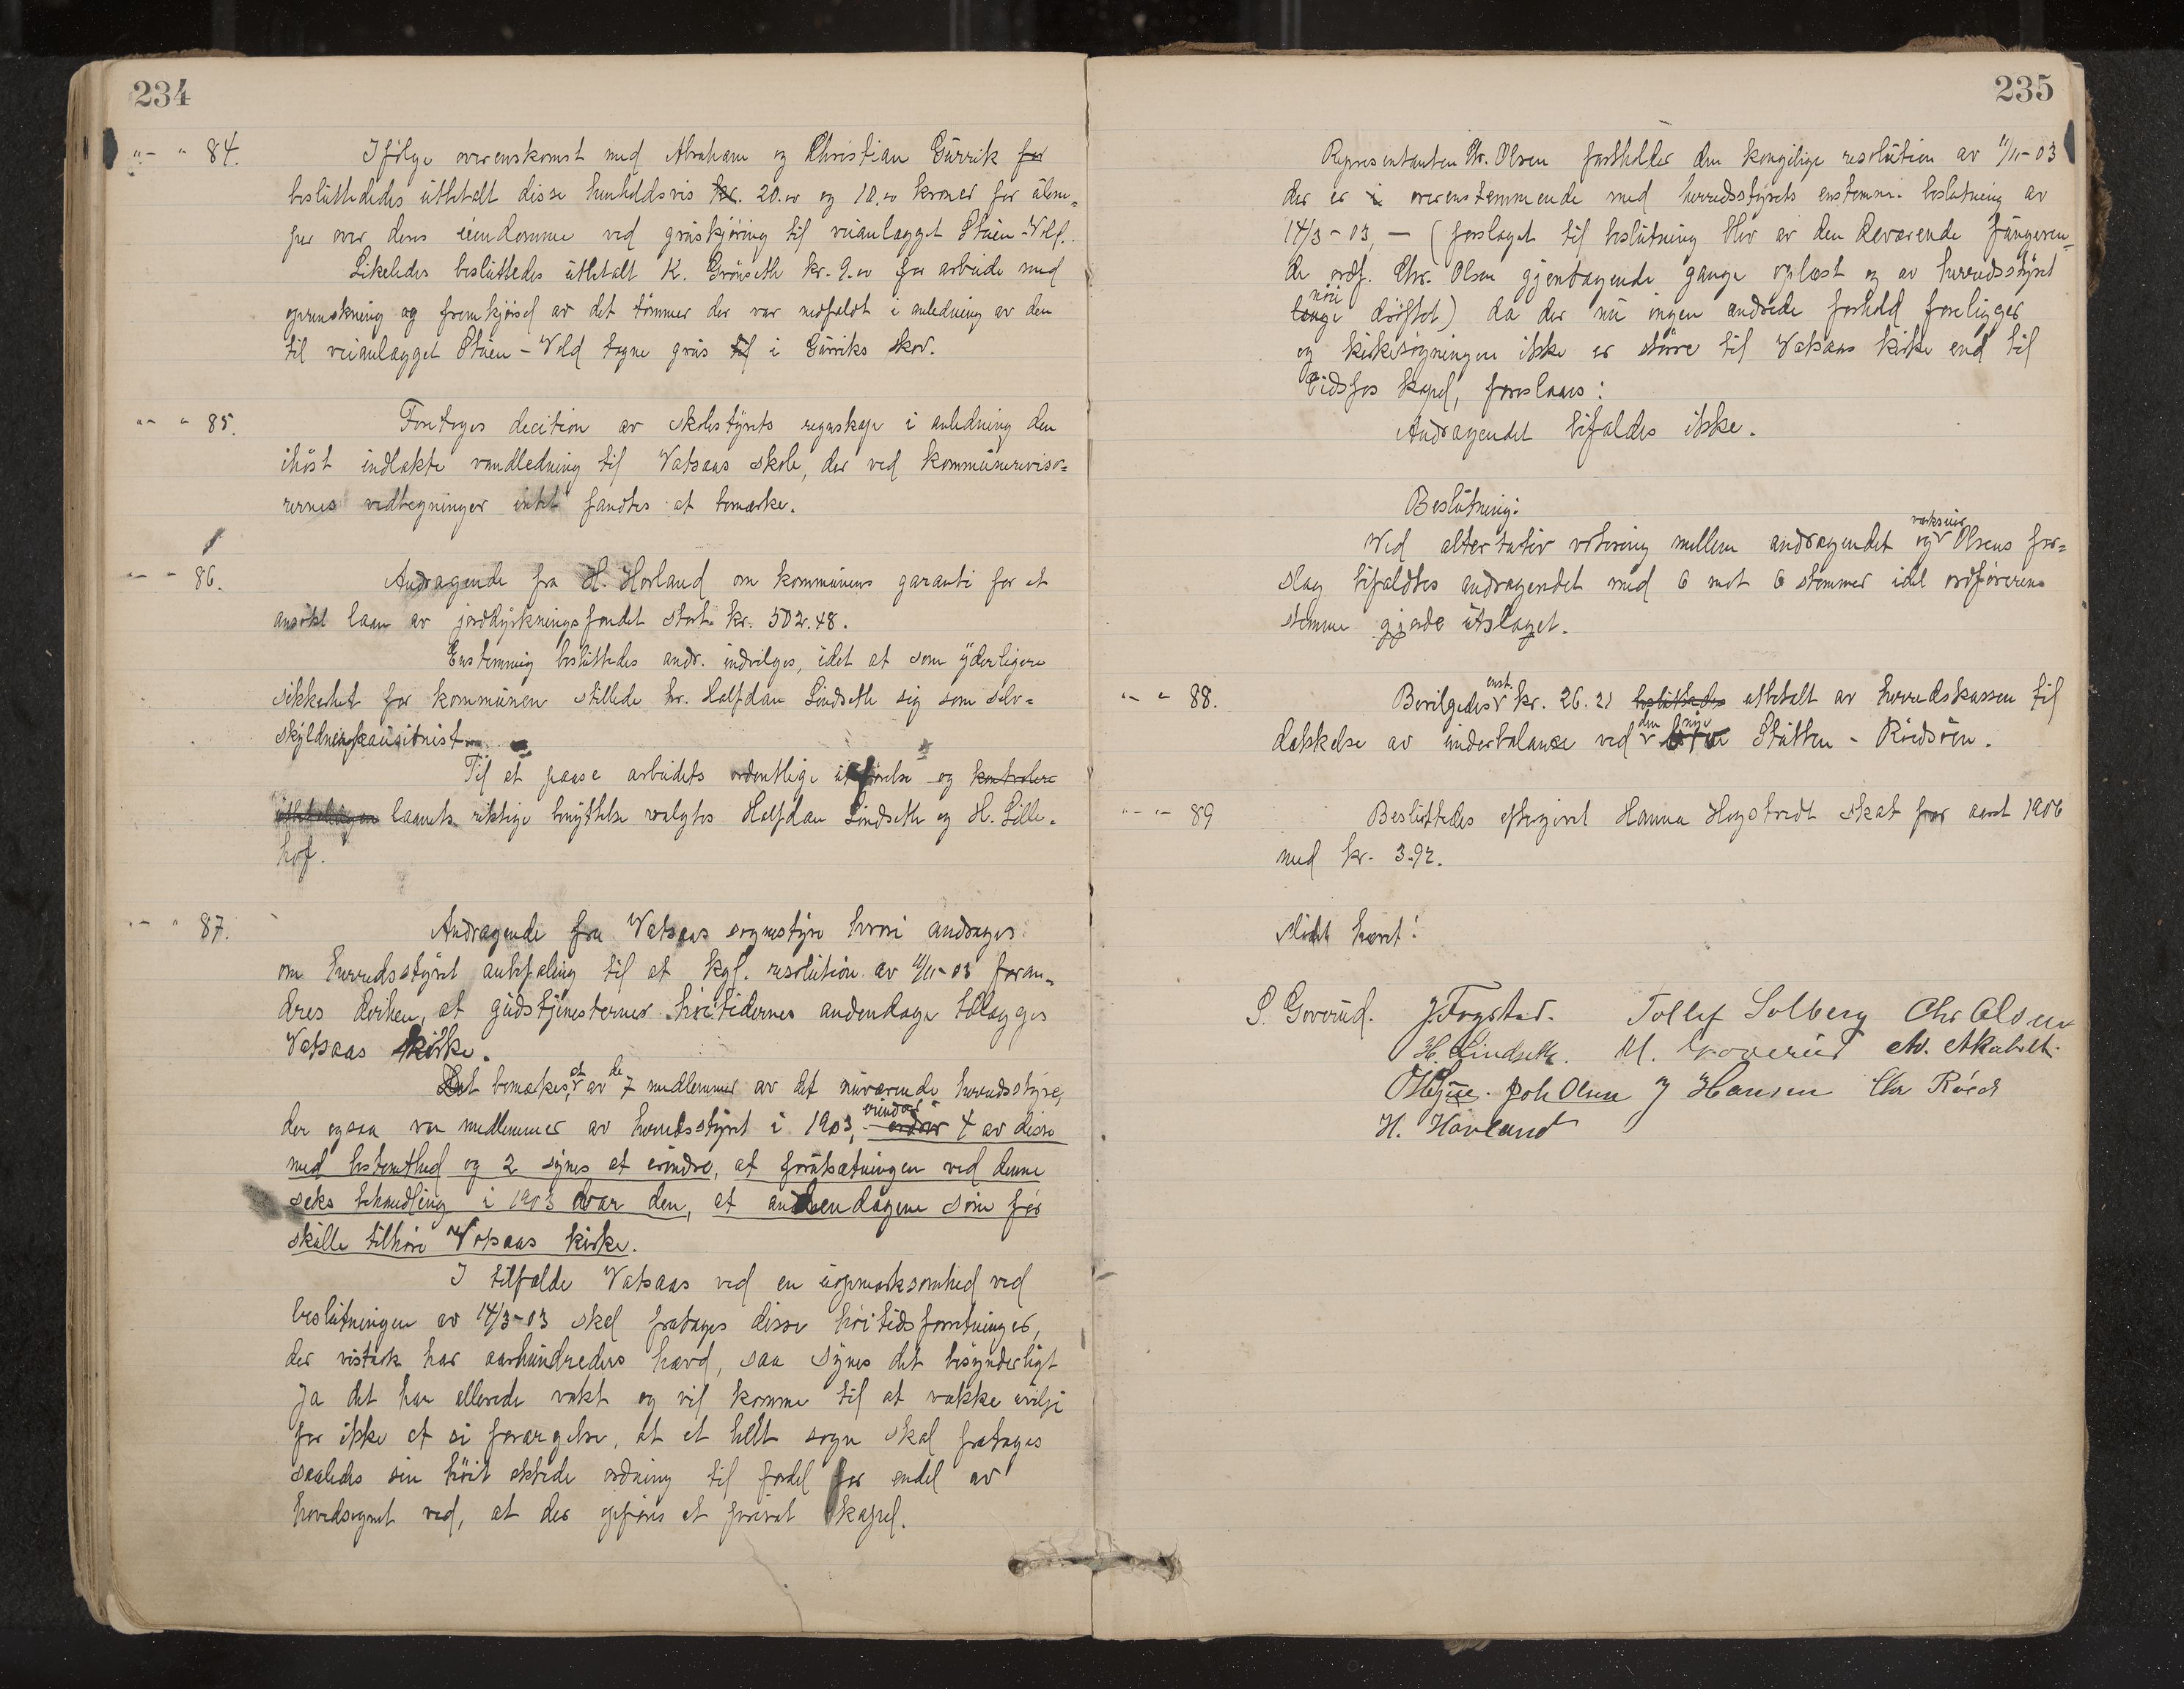 234
"- " 84. Ifölge overenskomst med Abraham og Christian Gurrik for
besluttededes utbetalt disse henholdsvis kr. 20.00 og 10.00 kroner for ülem-
per over deres eiendomme ved gruskjöring til veianlægget Stuen-Wolf.
Likeledes besluttedes utbetalt K. Grönseth kr. 9.00 for arbeide med
oprenskning og fremkjörsel av det tömmer der var nedfældt i anledning av den
til veianlægget Stuen-Wold tagne grus til i Gurriks skov.
"- " 85. Foretoges decition av skolestyrets regnskap i anledning den
ihöst indlakte vandledning til Vatsaas skole, der ved kommunereviso-
rernes vedtegninger intet fandtes at bemærke.
"- " 86. Andragende fra H. Horland om kommunens garanti for et
ansökt laan av jorddyrkningsfondet stort kr. 502.48.
Enstemmig besluttedes andr. indvilges, idet at som yderligere
sikkerhet for kommunen stillede hr. Halfdan Lindseth sig som selv-
skyldnerkautionist.
Til at paase arbeidets ordentlige utförelse og kontrolere
utbetalingen laanets riktige benyttelse valgtes Halfdan Lindseth og H. Lille-
hof.
"- " 87. Andragende fra Vatsaas sognestyre hvori andrages
om herredsstyret anbefaling til at kgl. resolution av 11/11-03 foran-
dres derhen, at gudstjenesternes höitidernes andendage tillægges
Vatsaas kirke.
Det bemerkes, at av de 7 medlemmer av det nuværende herredsstyre,
der ogsaa var medlemmer av herredsstyret i 1903, erindrer 4 av disse
med bestemthed og 2 synes at erindre, at forutsætningen ved denne
saks behandling i 1903 var den, at andendagene som för
skulle tilhöre Vatsaas kirke.
I tilfælde Vatsaas ved en uopmerksomhed ved
beslutningen av 14/3-03 skal fratages disse höitidsforretninger,
der vistnok har aarhundreders hævd, saa synes det besynderligt
Ja det har allerede vakt og vil komme til at vække uvilje
for ikke at si forargelse, at et helt sogn skal fratages
saaledes sin höit aktede ordning til fordel for endel av
hovedsognet ved, at der opföres et privat kapel.
235
Representanten Chr. Olsen fastholder den kongelige resolution av 11/11-03
der er i overenstemmende med herredsstyrets enstemm. beslutning av
14/3-03, — (forslaget til beslutning blev av den deværende fungeren-
de ordf. Chr. Olsen gjentagende gange oplæst og av herredsstyret
nöie
lenge dröftet) da der nu ingen andrede forhold foreligger
og kirkesögningen ikke er större til Vatsaas kirke end til
Eidsfos kapel, foreslaaes:
Andragendet bifaldes ikke.
Beslutning:
Ved altertativ votering mellem andragendet og verkseier Olsens for-
slag bifaldtes andragendet med 6 mot 6 stemmer idet ordförerens
stemme gjorde utslaget.
"- " 88. Bevilgedes enst. kr. 26.21 besluttedes utbetalt av herredskassen til
dækkelse av underbalanse ved den nye Stutten - Rudsöen.
"- "- 89 Besluttedes eftergivet Hanna Hogstvedt skat for aaret 1906
med kr. 3.92.
Mödet hævet!
S. Goverud. J. Fogstad. Tollef Solberg Chr Olsen
H. Lindseth. M. Goverud
Joh Olsen J Hansen Chr Röed
H. Hovland